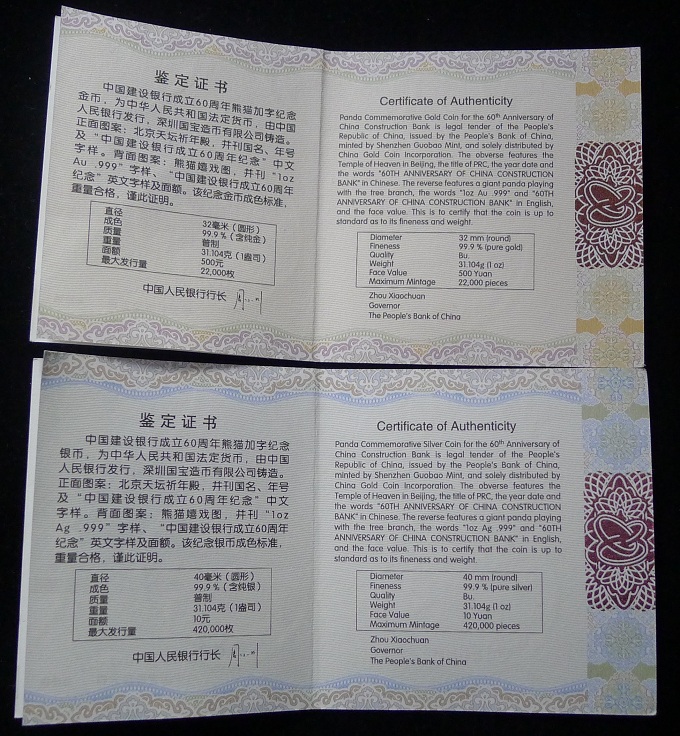 鉴定证书
中国建设银行成立60周年熊猫加字纪念
金币，为中华人民共和国法定货币，由中国
人民银行发行，深圳国宝造币有限公司铸造。
正面图案：北京天坛祈年殿，并刊国名、年号
及“中国建设银行成立60周年纪念”中文
字样。背面图案：熊猫嬉戏图，并刊“1oz
Au .999”字样、“中国建设银行成立60周年
纪念”英文字样及面额。该纪念金币成色标准，
重量合格，谨此证明。
直径 32毫米（圆形）
成色 99.9％（含纯金）
质量 普制
重量 31.104克（1盎司）
面额 500元
最大发行量 22,000枚
中国人民银行行长
Certificate of Authenticity
Panda Commemorative Gold Coin for the 60th Anniversary of
China Construction Bank is legal tender of the People's
Republic of China, issued by the People's Bank of China,
minted by Shenzhen Guobao Mint, and solely distributed by
China Gold Coin Incorporation. The obverse features the
Temple of Heaven in Beijing, the title of PRC, the year date and
the words "60TH ANNIVERSARY OF CHINA CONSTRUCTION
BANK" in Chinese. The reverse features a giant panda playing
with the tree branch, the words "1oz Au .999" and "60TH
ANNIVERSARY OF CHINA CONSTRUCTION BANK" in English,
and the face value. This is to certify that the coin is up to
standard as to its fineness and weight.
Diameter 32 mm (round)
Fineness 99.9 % (pure gold)
Quality Bu.
Weight 31.104g (1 oz)
Face Value 500 Yuan
Maximum Mintage 22,000 pieces
Zhou Xiaochuan
Governor
The People's Bank of China
鉴定证书
中国建设银行成立60周年熊猫加字纪念
银币，为中华人民共和国法定货币，由中国
人民银行发行，深圳国宝造币有限公司铸造。
正面图案：北京天坛祈年殿，并刊国名、年号
及“中国建设银行成立60周年纪念”中文
字样。背面图案：熊猫嬉戏图，并刊“1oz
Ag .999”字样、“中国建设银行成立60周年
纪念”英文字样及面额。该纪念银币成色标准，
重量合格，谨此证明。
直径 40毫米（圆形）
成色 99.9％（含纯银）
质量 普制
重量 31.104克（1盎司）
面额 10元
最大发行量 420,000枚
中国人民银行行长
Certificate of Authenticity
Panda Commemorative Silver Coin for the 60th Anniversary of
China Construction Bank is legal tender of the People's
Republic of China, issued by the People's Bank of China,
minted by Shenzhen Guobao Mint, and solely distributed by
China Gold Coin Incorporation. The obverse features the
Temple of Heaven in Beijing, the title of PRC, the year date and
the words "60TH ANNIVERSARY OF CHINA CONSTRUCTION
BANK" in Chinese. The reverse features a giant panda playing
with the tree branch, the words "1oz Ag .999" and "60TH
ANNIVERSARY OF CHINA CONSTRUCTION BANK" in English,
and the face value. This is to certify that the coin is up to
standard as to its fineness and weight.
Diameter 40 mm (round)
Fineness 99.9 % (pure silver)
Quality Bu.
Weight 31.104g (1 oz)
Face Value 10 Yuan
Maximum Mintage 420,000 pieces
Zhou Xiaochuan
Governor
The People's Bank of China